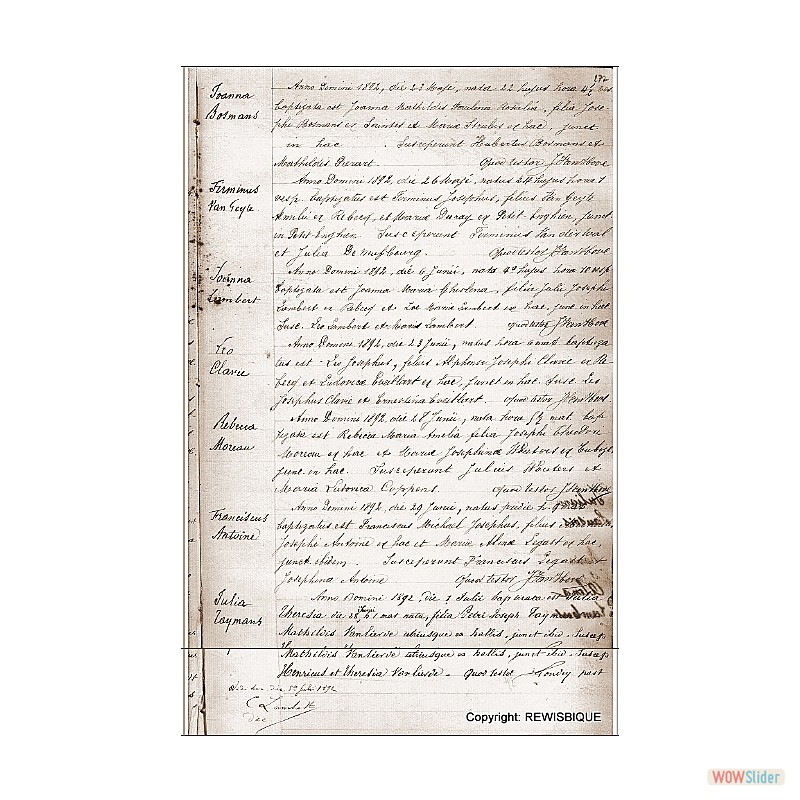 177
Joanna
Bosmans
Anno Domini 1892, die 23 Maji, nata 22 hujus hora 4½
baptizata est Joanna Mathildis Paulina Rosalia, filia Jose-
phi Bosmans ex Saintes et Maria Struber ex hac, junct.
in hac. Susceperunt Hubertus Bosmans et
Mathildis Pierart. Quod testor J. Van Hove
Firminus
Van Geyle
Anno Domini 1892, die 26 Maji, natus 24 hujus hora 1
vesp. baptizatus est Firminus Josephus, filius Van Geyle
Amelii ex Rebecq, et Maria Duray ex Petit Enghien, junct
in Petit-Enghien. Susceperunt Firminus Van der Wal
et Julia De Mussbourg. Quod testor J. Van Hove
Joanna
Lambert
Anno Domini 1892, die 6 Junii, nata 4a hujus hora 10 vesp.
baptizata est Joanna Maria Ghislena, filia Julii Josephi
Lambert ex Rebecq et Zoe Maria Lambert ex hac, junct. in hac.
Susc. Leo Lambert et Maria Lambert. quod testor J. Van Hove
Leo
Clavie
Anno Domini 1892, die 23 Junii, natus hora 6 mat. baptiza-
tus est Leo Josephus, filius Alphonsi Josephi Clavie ex Re-
becq et Ludovica Evillart ex hac, junct in hac. Susc. Leo
Josephus Clavie et Ernestina Evillart. quod testor J. Van Hove
Rebecca
Moreau
Anno Domini 1892, die 28 Junii, nata hora 5½ mat. bap-
tizata est Rebecca Maria Amelia filia Josephi
Moreau ex hac et Maria Josephina Wouters ex
junct. in hac. Susceperunt Julius Wouters et
Maria Ludovica Coppens. quod testor J. Van Hove
Franciscus
Antoine
Anno Domini 1892, die 29 Junii, natus pridie
baptizatus est Franciscus Michael Josephus, filius
Josephi Antoine ex hac et Maria Alina Legast ex hac,
junct. ibidem. Susceperunt Franciscus Legast et
Josephina Antoine Quod testor J. Van Hove
Julia
Taymans
Anno Domini 1892, die 1 Julii baptizata est Julia
Theresia die 28 Junii mat nata, filia Petri Joseph Taymans
Mathildis Vanlierde utriusque ex hallis, junct ibid. Suscep.
Mathildis Vanlierde utriusque ex hallis, junct ibid. Suscep.
Henricus et Theresia Vanlierde. Quod testor
Copyright: REWISBIQUE
WOWSlider